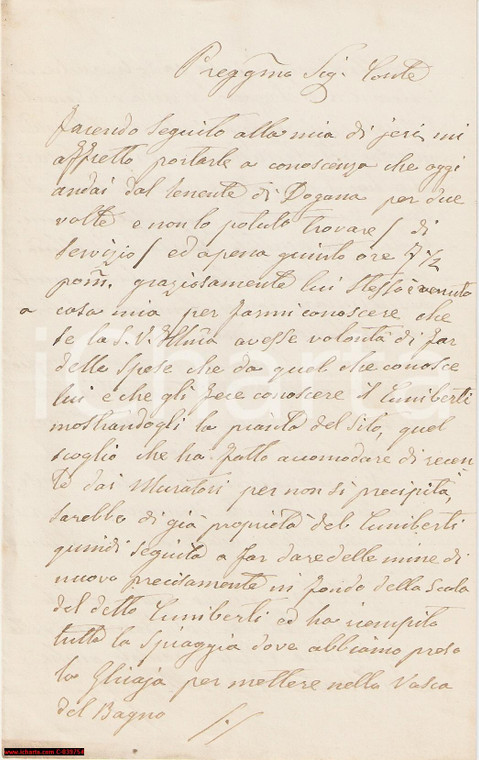 Pregg̃mo Sig. Conte
facendo seguito alla mia di jeri, mi
affretto portarle a conoscenza che oggi
andai dal tenente di Dogana per due
volte e non lo potuto trovare / di
servizio / ed apena giunto ore 7 1/2
pom. graziosamente lui stesso è venuto
a casa mia per farmi conoscere che
se la S. V. Illm̃a avesse volontà di far
delle spese che da quel che conosce
lui e che gli fece conoscere il Cuniberti
mostrandogli la pianta del sito, quel
scoglio che ha fatto accomodare di recen
te dai Muratori per non si precipita,
sarebbe di già proprietà del Cuniberti
quindi seguita a far dare delle mine di
nuovo precisamente in fondo della Scala
del detto Cuniberti ed ha riempito
tutta la spiaggia dove abbiamo preso
la Ghiaja per mettere nella Vasca
del Bagno
icharta
www.icharta.com C-039754